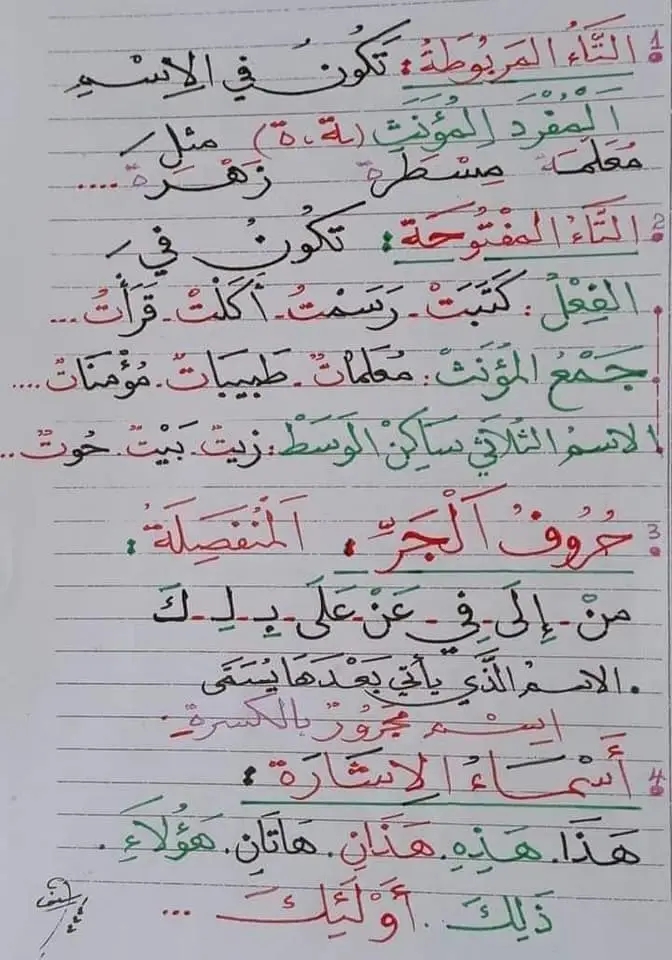 1 التَّاءُ المَرْبُوطَةُ: تَكُونُ فِي الاِسْمِ
المُفْرَدِ المُؤَنَّثِ (ـة، ة) مثل
مُعَلِّمَة مِسْطَرَة زَهْرَة ....
2 التَّاءُ المَفْتُوحَةُ: تَكُونُ فِي
الفِعْلُ: كَتَبَتْ - رَسَمْتُ - أَكَلَتْ - قَرَأْتُ ...
جَمْعُ المُؤَنَّثْ: مُعَلِّمَاتٌ - طَبِيبَاتٌ - مُؤْمِنَاتٌ ....
الاسمُ الثُّلَاثِي سَاكِنْ الوَسَطْ: زيتٌ. بَيْتٌ. حُوتٌ ..
3 حُرُوفُ الْجَرِّ. المُنْفَصِلَةُ:
مِنْ - إِلَى - فِي - عَنْ - عَلَى - بِـ - لِـ - كَـ
. الاسمُ الَّذِي يأتي بَعْدَهَا يُسَمَّى
اسم مجرورٌ بالكسرة.
4 أَسْمَاءُ الإِشَارَةِ:
هَذَا. هَذِهِ. هَذَانِ. هَاتَانِ. هَؤُلَاءِ.
ذَلِكَ. أُوْلَئِكَ ...